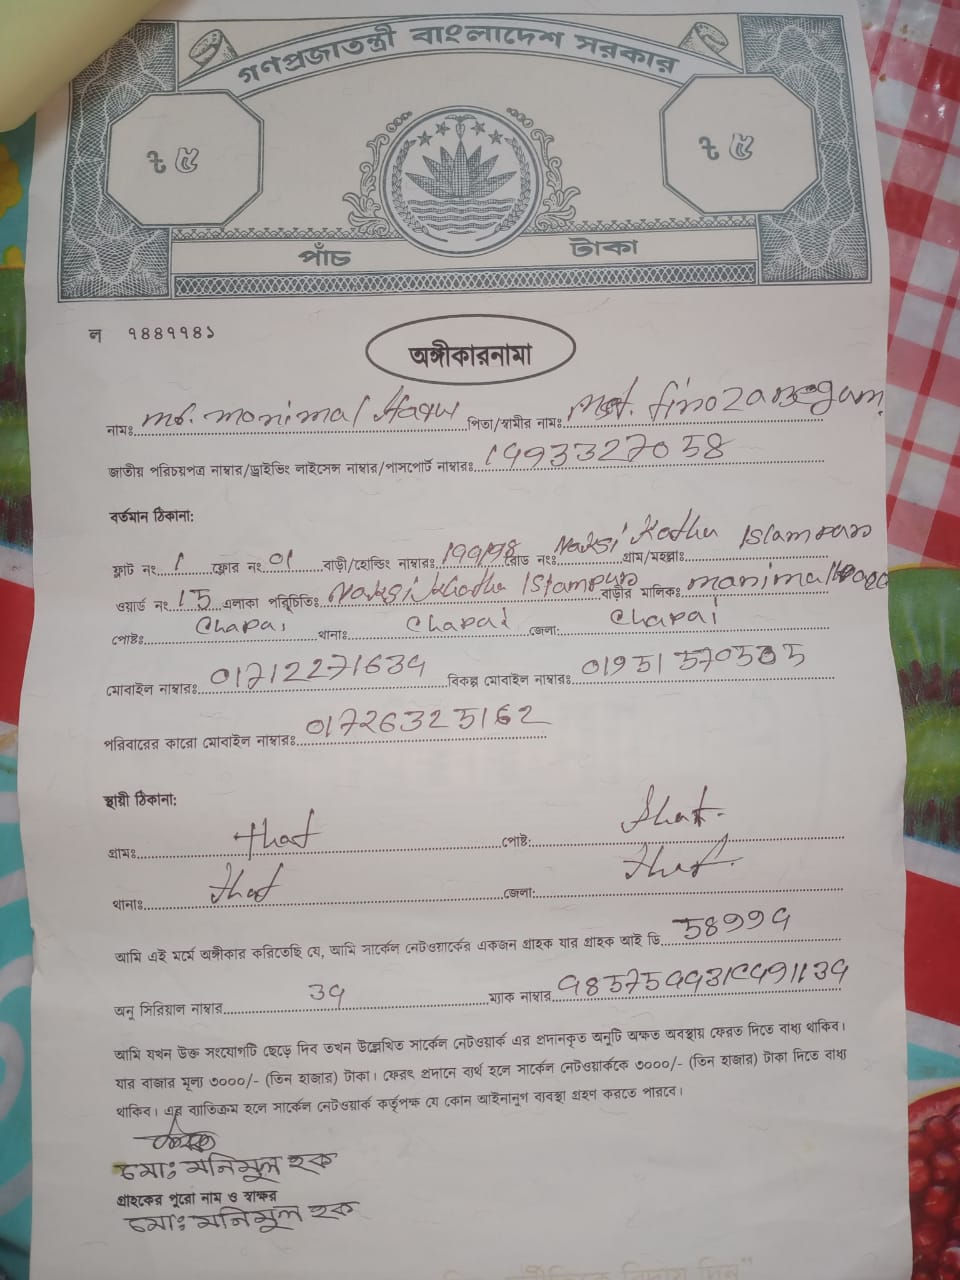 গণপ্রজাতন্ত্রী বাংলাদেশ সরকার
৳ ৫ ৳ ৫
পাঁচ টাকা
ন ৭৪৪৭৭৪১
অঙ্গীকারনামা
নামঃ md. monimal Haqu পিতা/স্বামীর নামঃ Mst. firoza Begam
জাতীয় পরিচয়পত্র নাম্বার/ড্রাইভিং লাইসেন্স নাম্বার/পাসপোর্ট নাম্বারঃ 1993327058
বর্তমান ঠিকানা:
ফ্লাট নং 1 ফ্লোর নং 01 বাড়ী/হোল্ডিং নাম্বারঃ রোড নং Naksi Katha গ্রাম/মহল্লাঃ Islampur
ওয়ার্ড নং 15 এলাকা পরিচিতিঃ Naksi Khatha Islampur বাড়ীর মালিকঃ
পোষ্টঃ Chapai থানাঃ Chapai জেলা: Chapai
মোবাইল নাম্বারঃ 01712271634 বিকল্প মোবাইল নাম্বারঃ
পরিবারের কারো মোবাইল নাম্বারঃ 01726325162
স্থায়ী ঠিকানা:
গ্রামঃ that পোষ্ট: that
থানাঃ that জেলা: that
আমি এই মর্মে অঙ্গীকার করিতেছি যে, আমি সার্কেল নেটওয়ার্কের একজন গ্রাহক যার গ্রাহক আই ডি
অনু সিরিয়াল নাম্বার ম্যাক নাম্বার
আমি যখন উক্ত সংযোগটি ছেড়ে দিব তখন উল্লেখিত সার্কেল নেটওয়ার্ক এর প্রদানকৃত অনুটি অক্ষত অবস্থায় ফেরত দিতে বাধ্য থাকিব।
যার বাজার মূল্য ৩০০০/- (তিন হাজার) টাকা। ফেরৎ প্রদানে ব্যর্থ হলে সার্কেল নেটওয়ার্ককে ৩০০০/- (তিন হাজার) টাকা দিতে বাধ্য
থাকিব। এর ব্যতিক্রম হলে সার্কেল নেটওয়ার্ক কর্তৃপক্ষ যে কোন আইনানুগ ব্যবস্থা গ্রহণ করতে পারবে।
মোঃ মনিমুল হক
গ্রাহকের পুরো নাম ও স্বাক্ষর
মোঃ মনিমুল হক